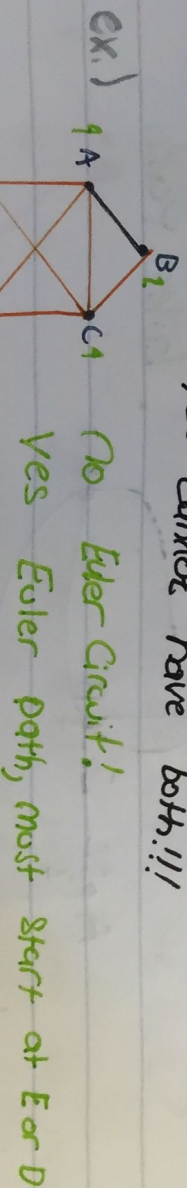 have both!!!
ex.)
B 2
4 A
C 4
no Euler Circuit!
Yes Euler path, must start at E or D